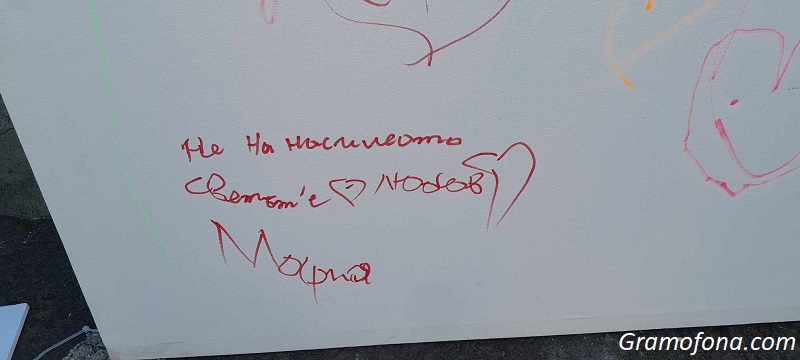 Не на насилието
светът е любов
Мария
Gramofona.com